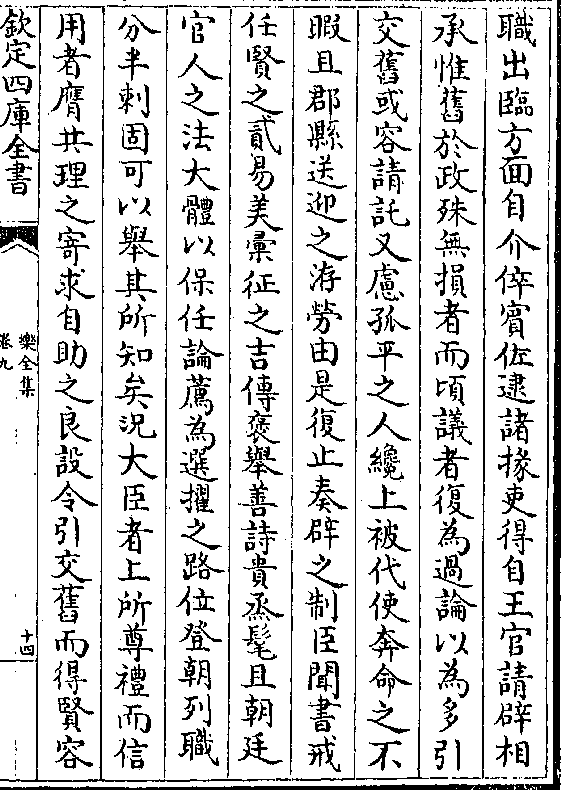 職出臨方面自介倅賓佐逮諸掾吏得自王官請辟相
承惟舊於政殊無損者而頃議者復為過論以為多引
交舊或容請託又慮孤平之人纔上被代使奔命之不
暇且郡縣送迎之洊勞由是復止奏辟之制臣聞書戒
任賢之貳易美彙征之吉傳褒舉善詩貴烝髦且朝廷
官人之法大體以保任論薦為選擢之路位登朝列職
分半刺固可以舉其所知矣況大臣者上所尊禮而信
用者膺共理之寄求自助之良設令引交舊而得賢容
欽定四庫全書
樂全集
卷九
十四